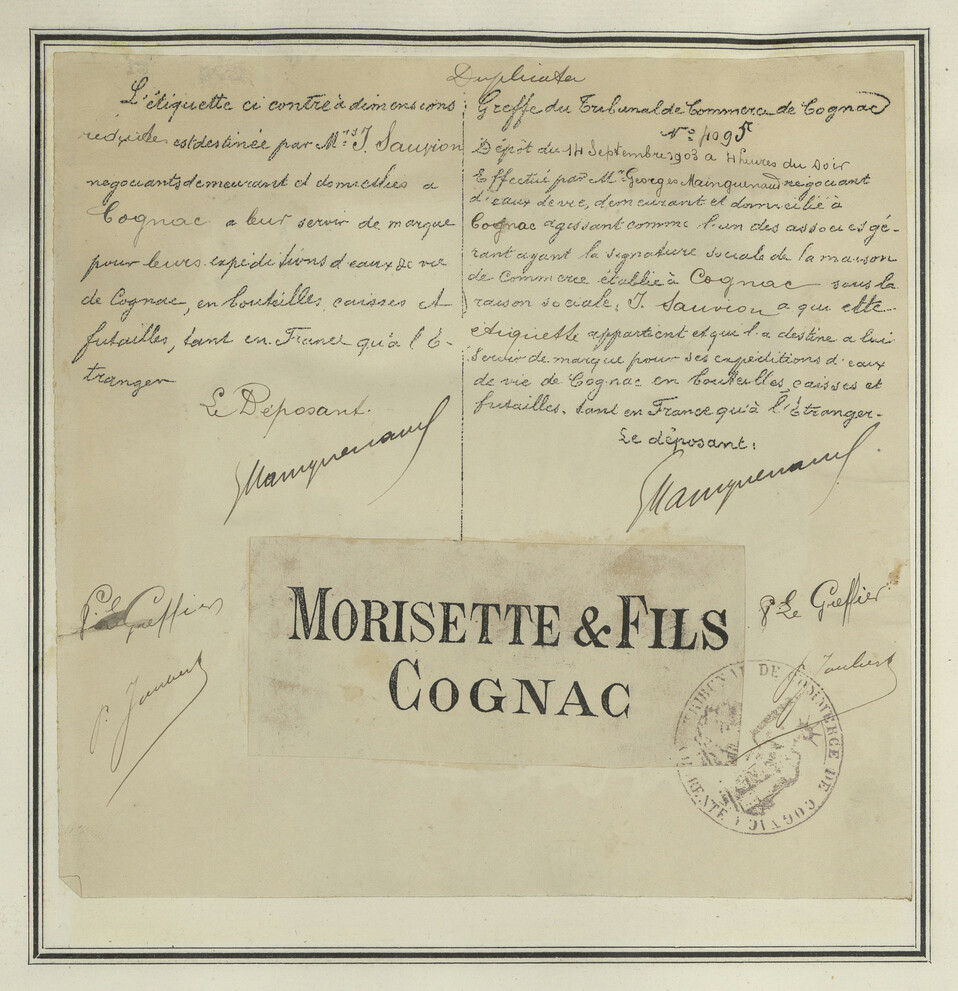 Duplicata
L'étiquette ci contre à dimensions
réduites est destinée par Mrs J. Sauvion
négociants demeurant et domiciliés a
Cognac a leur servir de marque
pour leurs expéditions d'eaux de vie
de Cognac, en bouteilles, caisses et
futailles, tant en France qu'à l'é-
tranger
Le Déposant.
GMainguenaud
Pr. Le Greffier
P. Joubert
Greffe du Tribunal de Commerce de Cognac
No 4095
Dépôt du 14 Septembre 1903 a 4 heures du soir
Effectué par Mr Georges Mainguenaud négociant
d'eaux de vie, demeurant et domicilié à
Cognac agissant comme l'un des associés gé-
rant ayant la signature sociale de la maison
de Commerce établie à Cognac sous la
raison sociale, J. Sauvion a qui cette
étiquette appartient et qui l'a destine a lui
servir de marque pour ses expéditions d'eaux
de vie de Cognac en bouteilles, caisses et
futailles, tant en France qu'à l'Étranger-
Le déposant,
GMainguenaud
Pr. Le Greffier
P. Joubert
MORISETTE & FILS
COGNAC
TRIBUNAL DE COMMERCE DE COGNAC